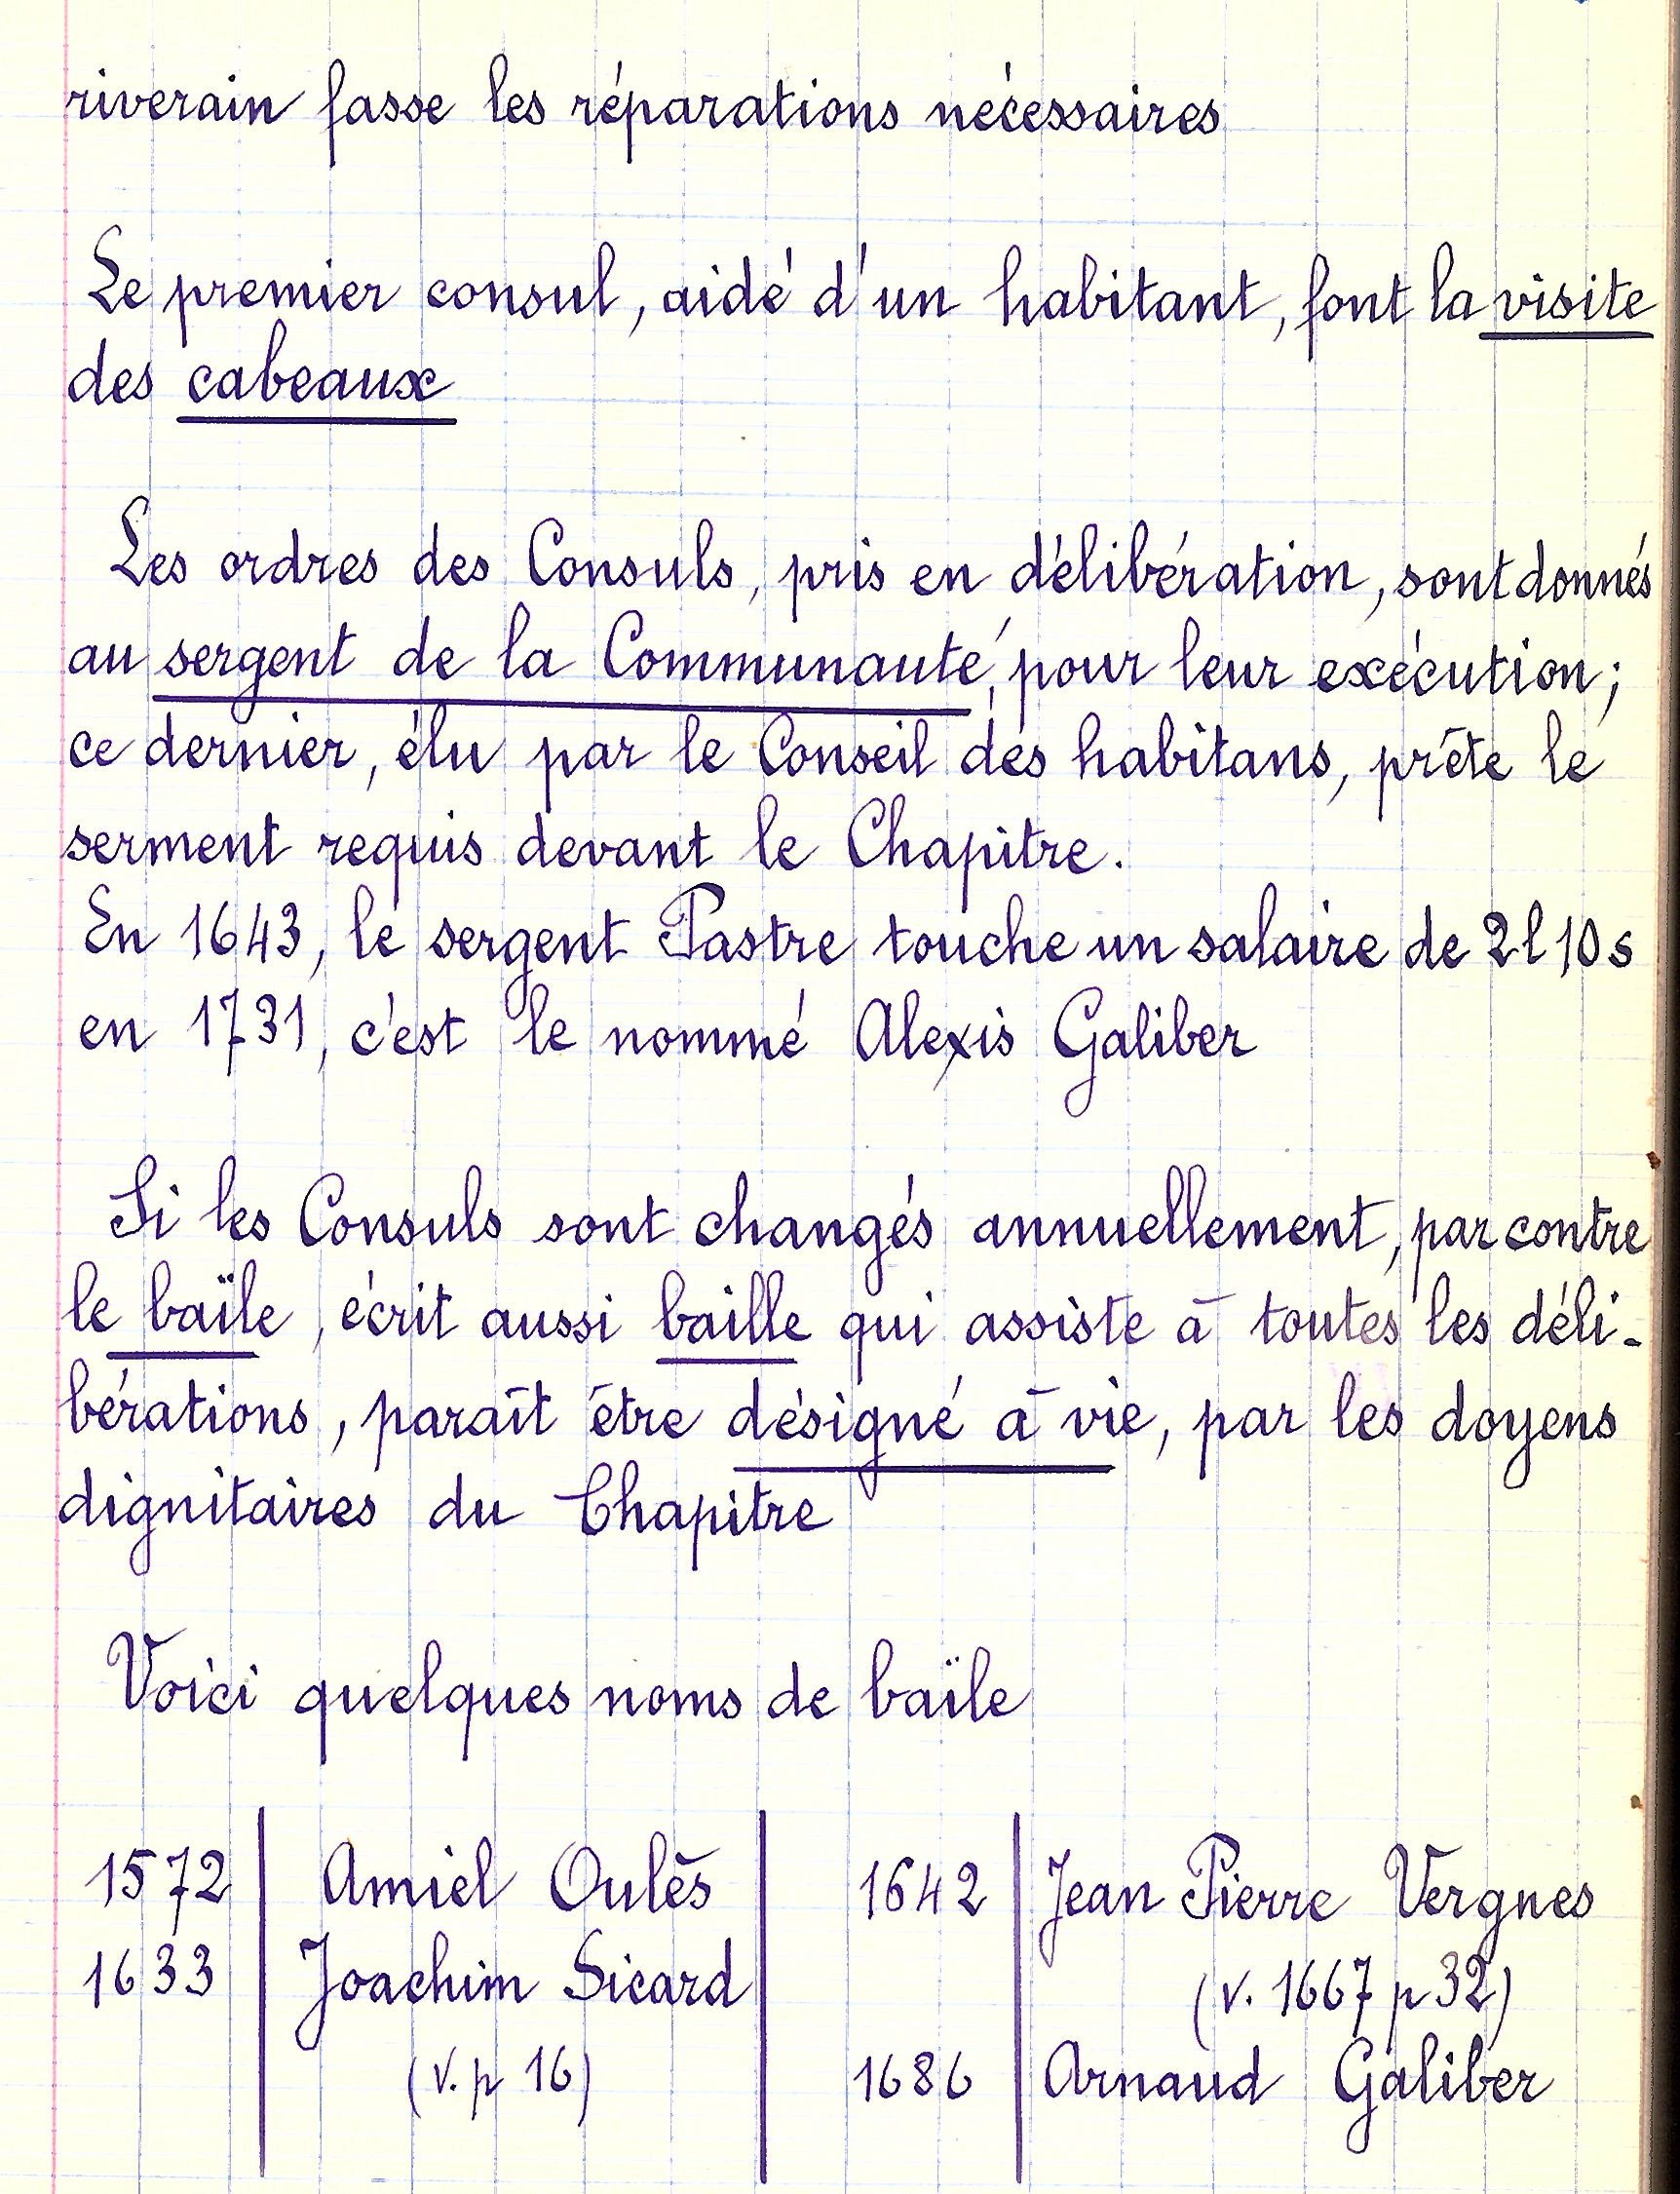 riverain fasse les réparations nécessaires
Le premier consul, aidé d'un habitant, font la visite
des cabeaux
Les ordres des Consuls, pris en délibération, sont donnés
au sergent de la Communauté, pour leur exécution;
ce dernier, élu par le Conseil des habitans, prête le
serment requis devant le Chapitre.
En 1643, le sergent Pastre touche un salaire de 2 l 10 s
en 1731, c'est le nommé Alexis Galiber
Si les Consuls sont changés annuellement, par contre
le baïle, écrit aussi baille qui assiste à toutes les déli-
bérations, paraît être désigné à vie, par les doyens
dignitaires du Chapitre
Voici quelques noms de baïle
1572 | Amiel Oulès | 1642 | Jean Pierre Vergnes
1633 | Joachim Sicard | (v. 1667 p 32)
(v. p 16) | 1686 | Arnaud Galiber